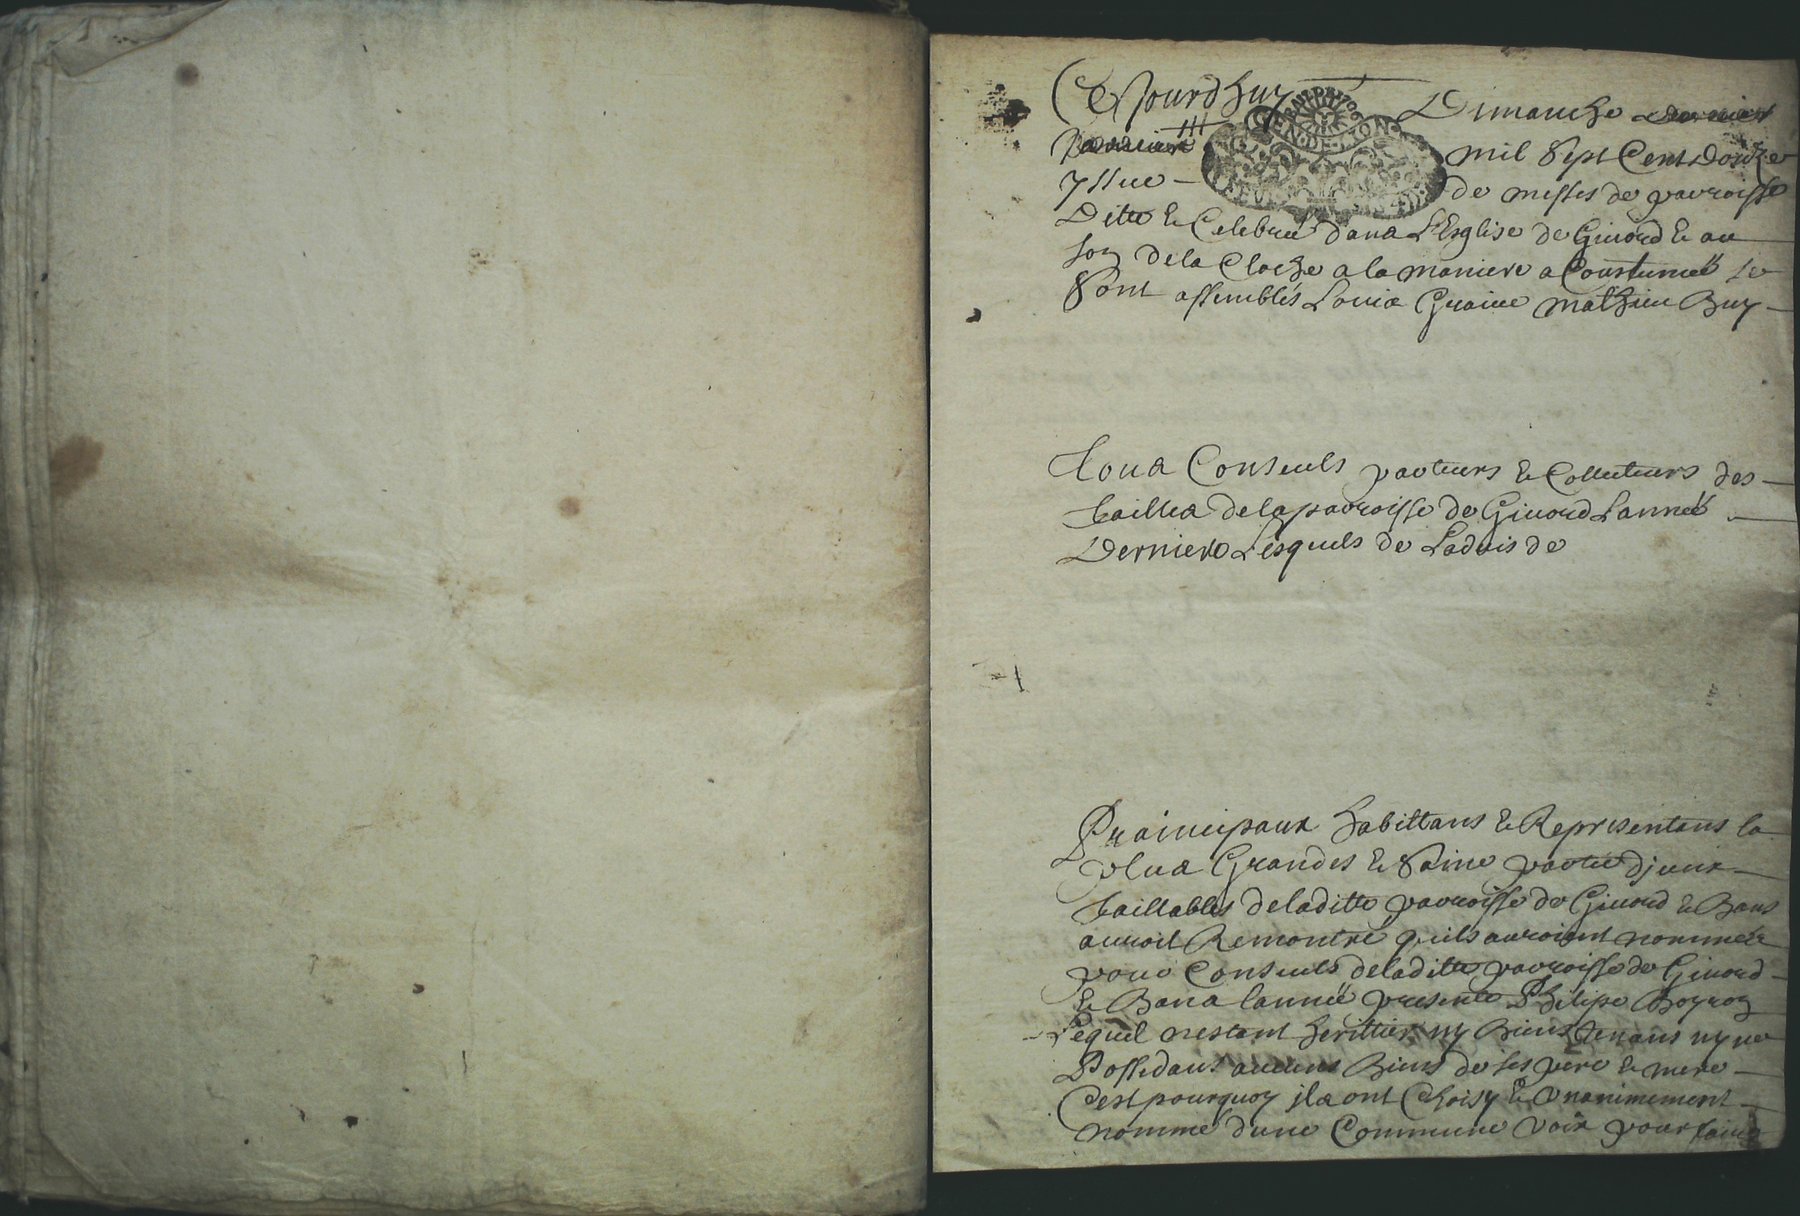 Ce Jourdhuy Dimanche
mil Sept Cent Douze
yssue de messes de parroisse
Ditte & Celebreé dans L'Esglise de Giuord & au
son de la Cloche a la maniere a Coustumeé se
Sont assemblés Louis mathieu Buy
Tous Consuls & Collecteurs des
tailles de la parroisse de Giuord Lanneé
Derniere Lesquels de Laduis de
Principaux habittans & Representans la
plus Grandes & Saine partie d'jceux
taillables de laditte parroisse de Giuord & Bans
auroit Remontre quils auroient nommée
pour Consuls de laditte parroisse de Giuord
& Bans lanneé presente Philipe
Lequel nestant herittier ny Biens tenans ny ne
Possedans aucuns Biens de ses pere & mere
Cest pourquoy jls ont Choisy & vnanimement
nommé dune Commune voix pour